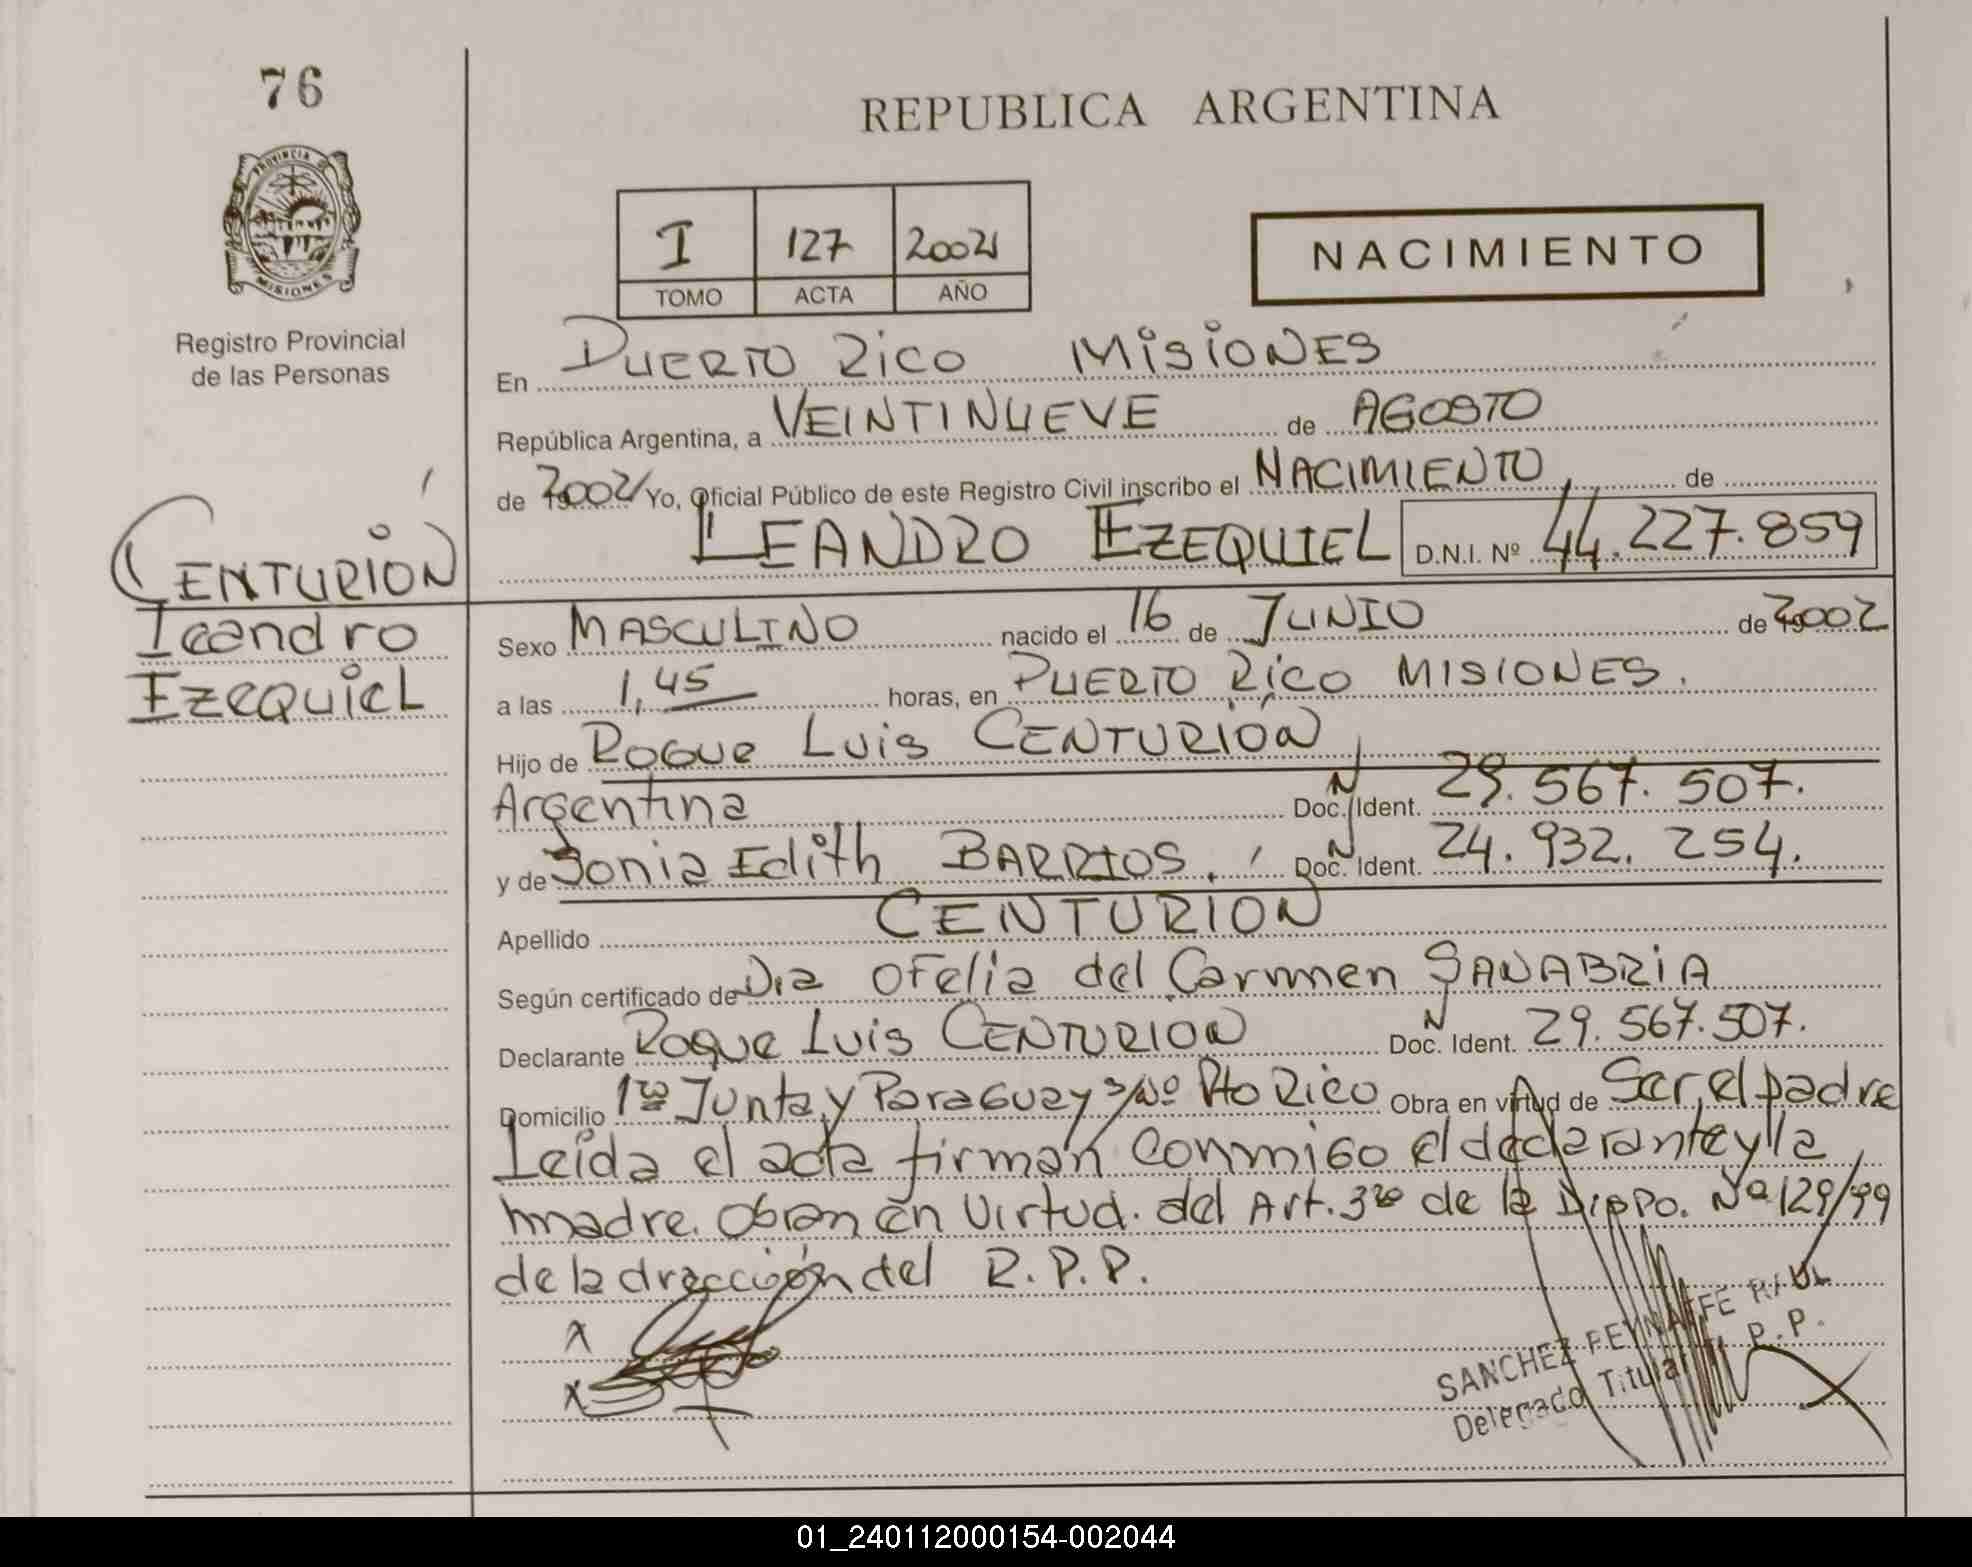 76
REPUBLICA ARGENTINA
PROVINCIA DE
MISIONES
Registro Provincial
de las Personas
I 127 2002
TOMO ACTA AÑO
NACIMIENTO
En PUERTO RICO MISIONES
República Argentina, a VEINTINUEVE de AGOSTO
de 2002 Yo, Oficial Público de este Registro Civil inscribo el NACIMIENTO, de
LEANDRO EZEQUIEL D.N.I. Nº 44.227.859
CENTURIÓN
Leandro
EZEQUIEL
Sexo MASCULINO nacido el 16 de JUNIO de 2002
a las 1,45 horas, en PUERTO RICO MISIONES.
Hijo de ROQUE LUIS CENTURIÓN,
Argentina Doc. N Ident. 29.567.507.
y de Sonia Edith BARRIOS, Doc. N Ident. 24.932.254.
Apellido CENTURION
Según certificado de Dra OFelia del Carmen SANABRIA
Declarante Roque Luis CENTURION Doc. N Ident. 29.567.507.
Domicilio 1ra Junta y Paraguay s/Nº Pto Rico Obra en virtud de Ser el padre
Leída el acta firman conmigo el declarante y la
madre. Obran en Virtud. del Art. 3ro de la Dispo. Nº 129/99
de la dirección del R.P.P.
X
X
SANCHEZ RAUL
Delegado Titular R.P.P.
01_240112000154-002044